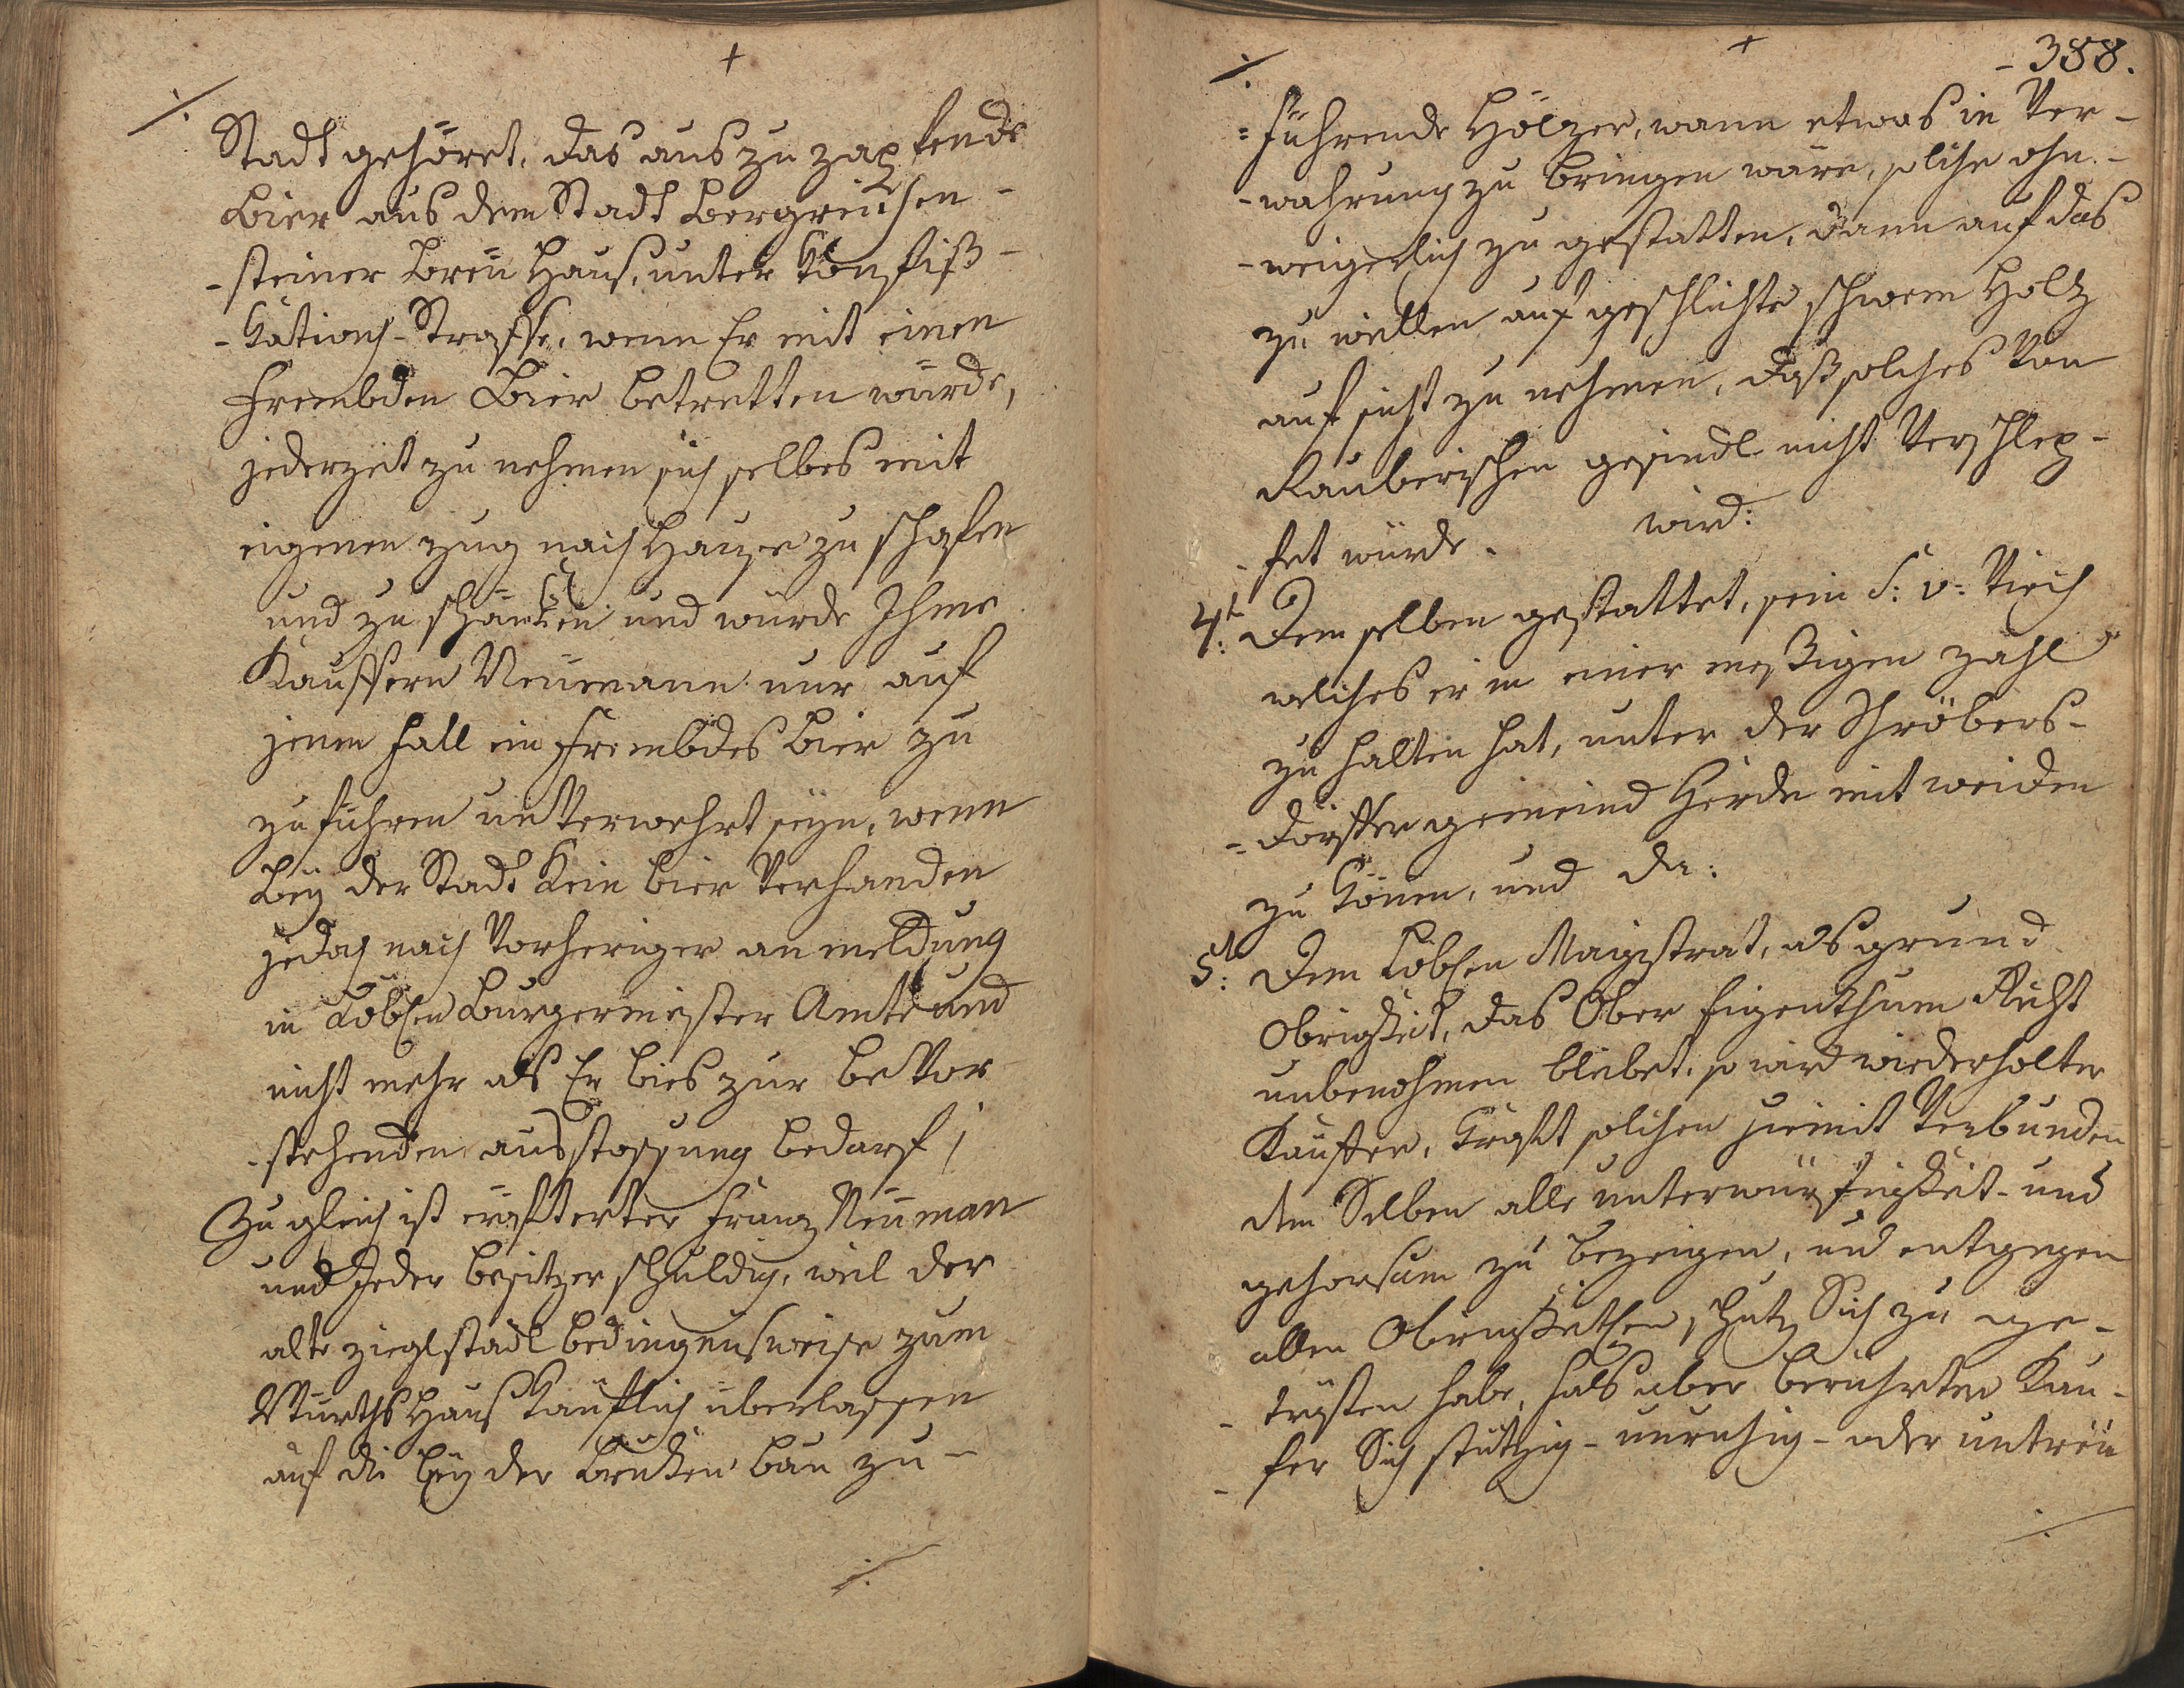 +
Stadt gehöret, das aus zu zapfende
Bier aus dem Stadt Bergreichen-
-steiner Breu Haus, unter Konfiß-
-kations-Straffe, wenn Er mit einen
frembden Bier betretten würde,
jederzeit zu nehmen sich selbes mit
eigenen zug nach Hause zu schafen
und zu schänken und würde Ihme
Kauffern Neümann nur auf
jenen fall ein frembdes Bier zu
zuführen unverwehrt seÿn, wenn
beÿ der Stadt kein bier verhanden
jedoch nach vorheriger anmeldung
in Löblen Burgermeister Amte und
nicht mehr als Er bies zur bevor
-stehenden ausstossung bedarf;
Zugleich ist eröffterter Frantz Neüman
und Jeder besitzer schuldig, weil der
alte zieglstadl bedingnusweise zum
Würthshaus käuflich überlassen
auf die beÿ der brüken bau zu-
+
-388.
=führende Hölzer, wann etwas in Ver-
-wahrung zu bringen wäre, solche ohn-
-weigerlich zu gestatten, dann auf das
zu weillen aufgeschlichte schwem Holtz
aufsicht zu nehmen, daß solches von
Rauberischen gesindl nicht verschlep-
-fet würde. wird:
4t: Dem selben gestattet, sein S: v: Viech
welches er in einer meßigen zahl
zu halten hat, unter der Schröbers-
=dorffer gemeind Herde mit weiden
zu können, und da:
5t: Dem Löblen Magistrat, als grund
Obrigkeit, das Ober Eigenthum Recht
unbenohmen bleibet, so wird wiederholter
Kauffer, kraft solchen hiemit verbunden
dem Selben alle unterwürfigkeit- und
gehorsam zu bezeigen, und entgegen
allen Obrigkeitlen schutz Sich zu ge-
-trösten habe, fals aber berührter Kau-
-fer Sich stützig- unruhig- oder untreü